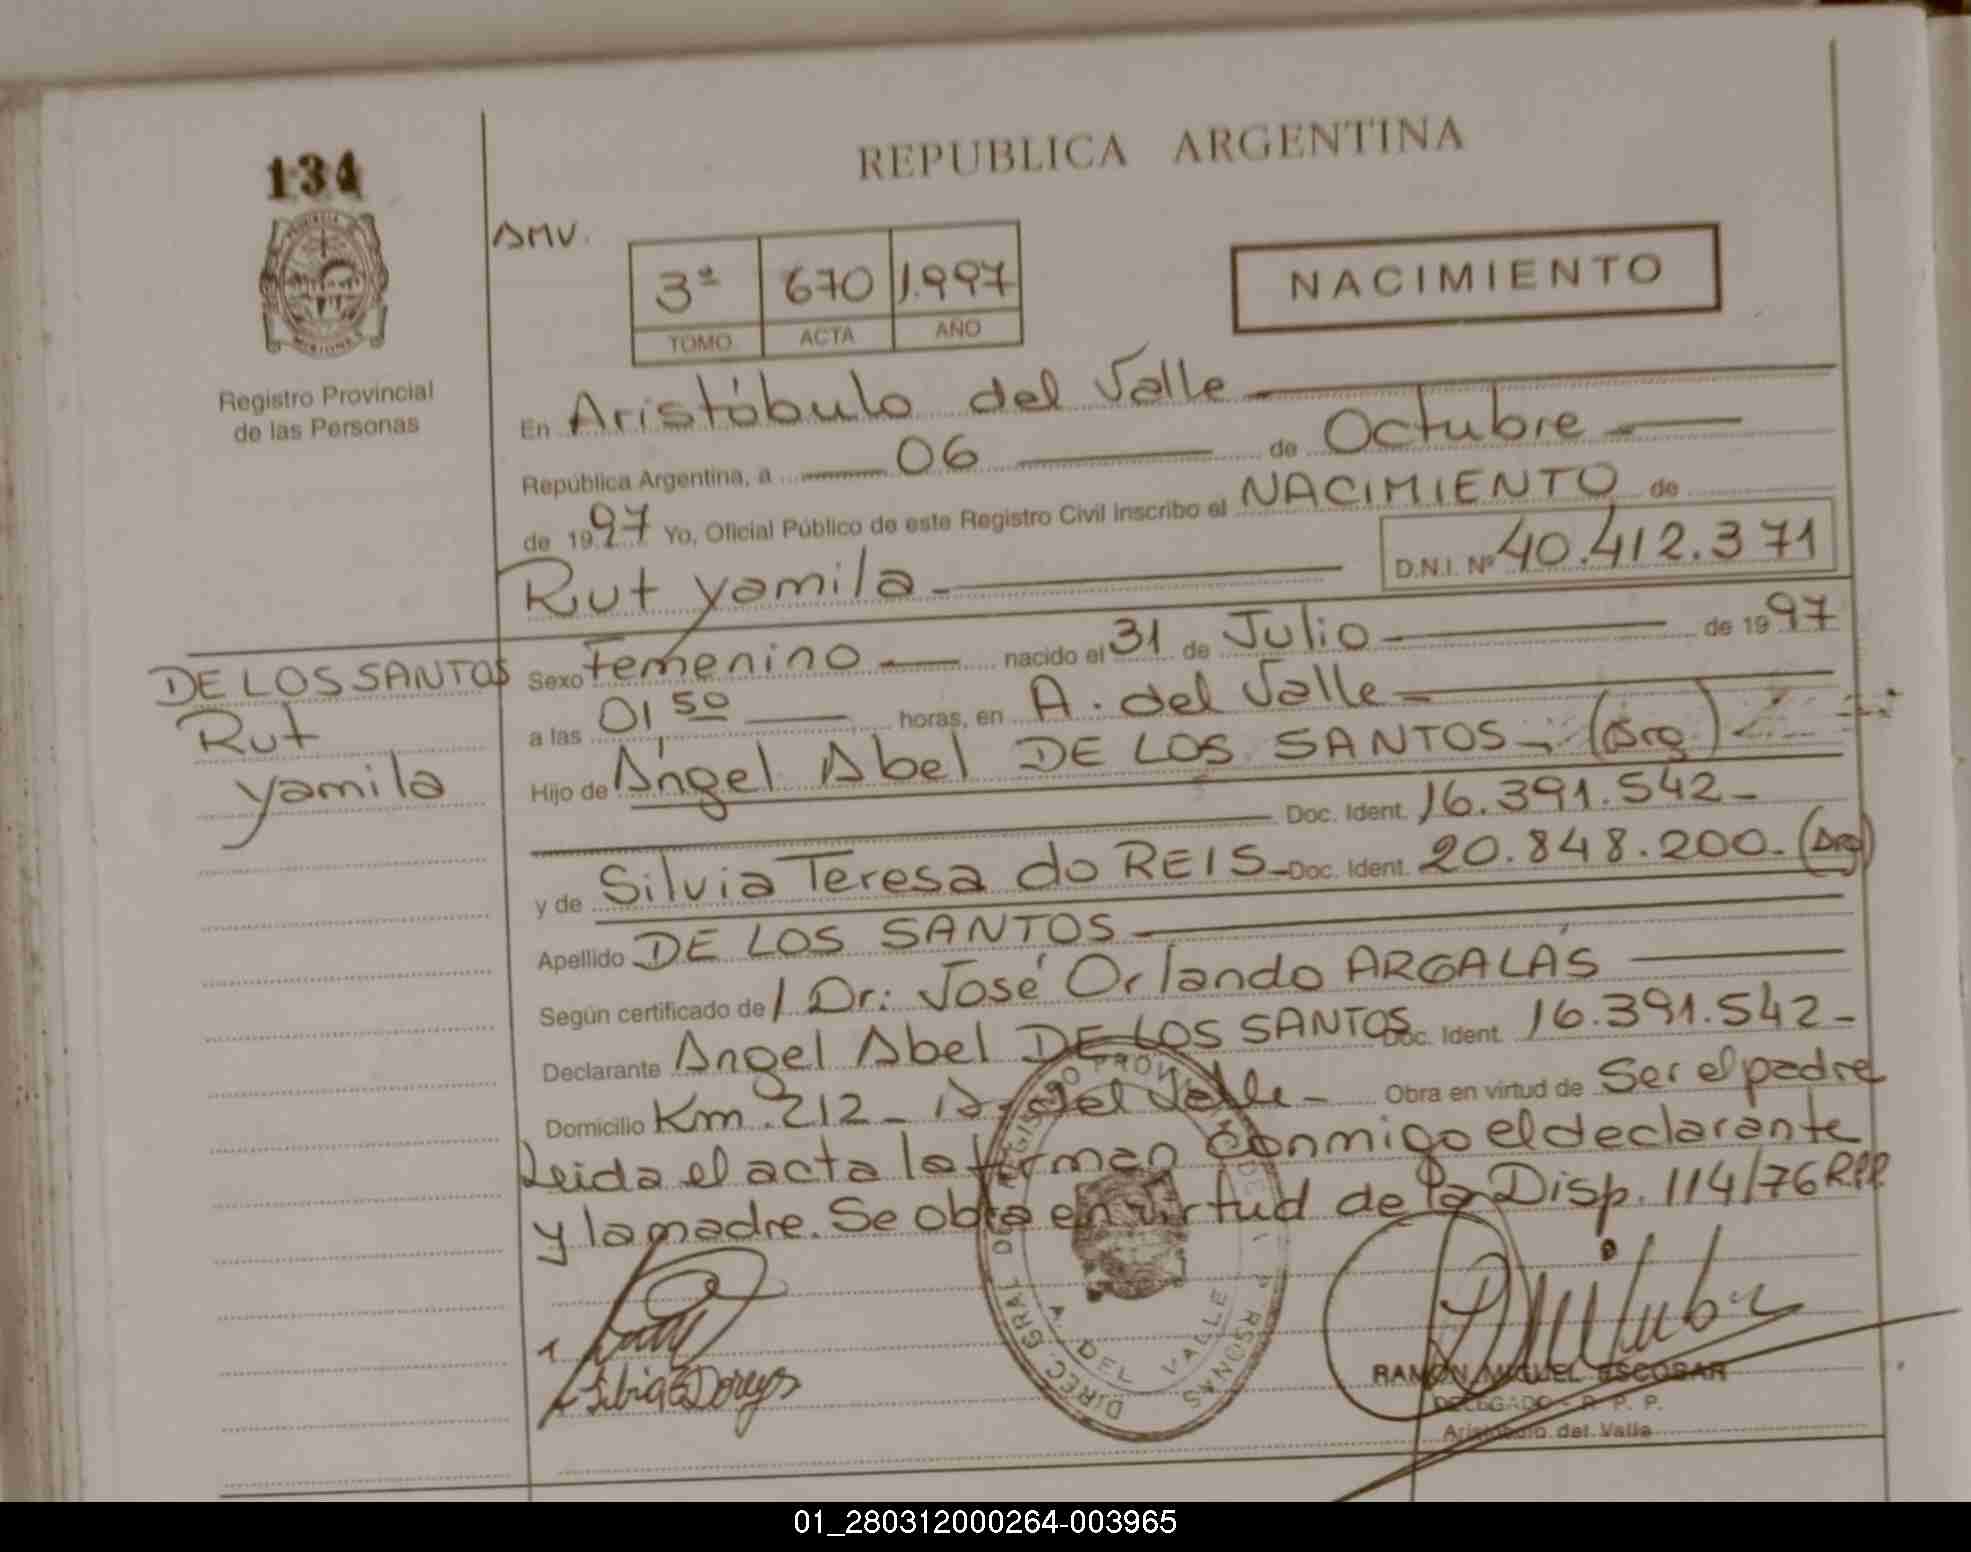 134
REPUBLICA ARGENTINA
AMV.
3ª 670 1.997
TOMO ACTA AÑO
NACIMIENTO
Registro Provincial
de las Personas
En Aristóbulo del Valle
República Argentina, a 06 de Octubre
de 1997 Yo, Oficial Público de este Registro Civil inscribo el NACIMIENTO de
Rut Yamila D.N.I. Nº 40.412.371
DE LOS SANTOS
Rut
Yamila
Sexo Femenino nacido el 31 de Julio de 1997
a las 01 50 horas, en A. del Valle
Hijo de Angel Abel DE LOS SANTOS (Arg)
Doc. Ident. 16.391.542-
y de Silvia Teresa do REIS Doc. Ident. 20.848.200.(Arg)
Apellido DE LOS SANTOS
Según certificado de / Dr: José Orlando ARGALÁS
Declarante Angel Abel DE LOS SANTOS Doc. Ident. 16.391.542-
Domicilio Km. 212- A. del Valle- Obra en virtud de Ser el padre
Leida el acta la firman conmigo el declarante
y la madre. Se obra en virtud de la Disp. 114/76 R.P.P.
DIREC. GRAL DE REGISTRO PROV. DE PERSONAS
A. DEL VALLE
RAMÓN MIGUEL ESCOBAR
DELEGADO - R. P. P.
Aristóbulo del Valle
01_280312000264-003965